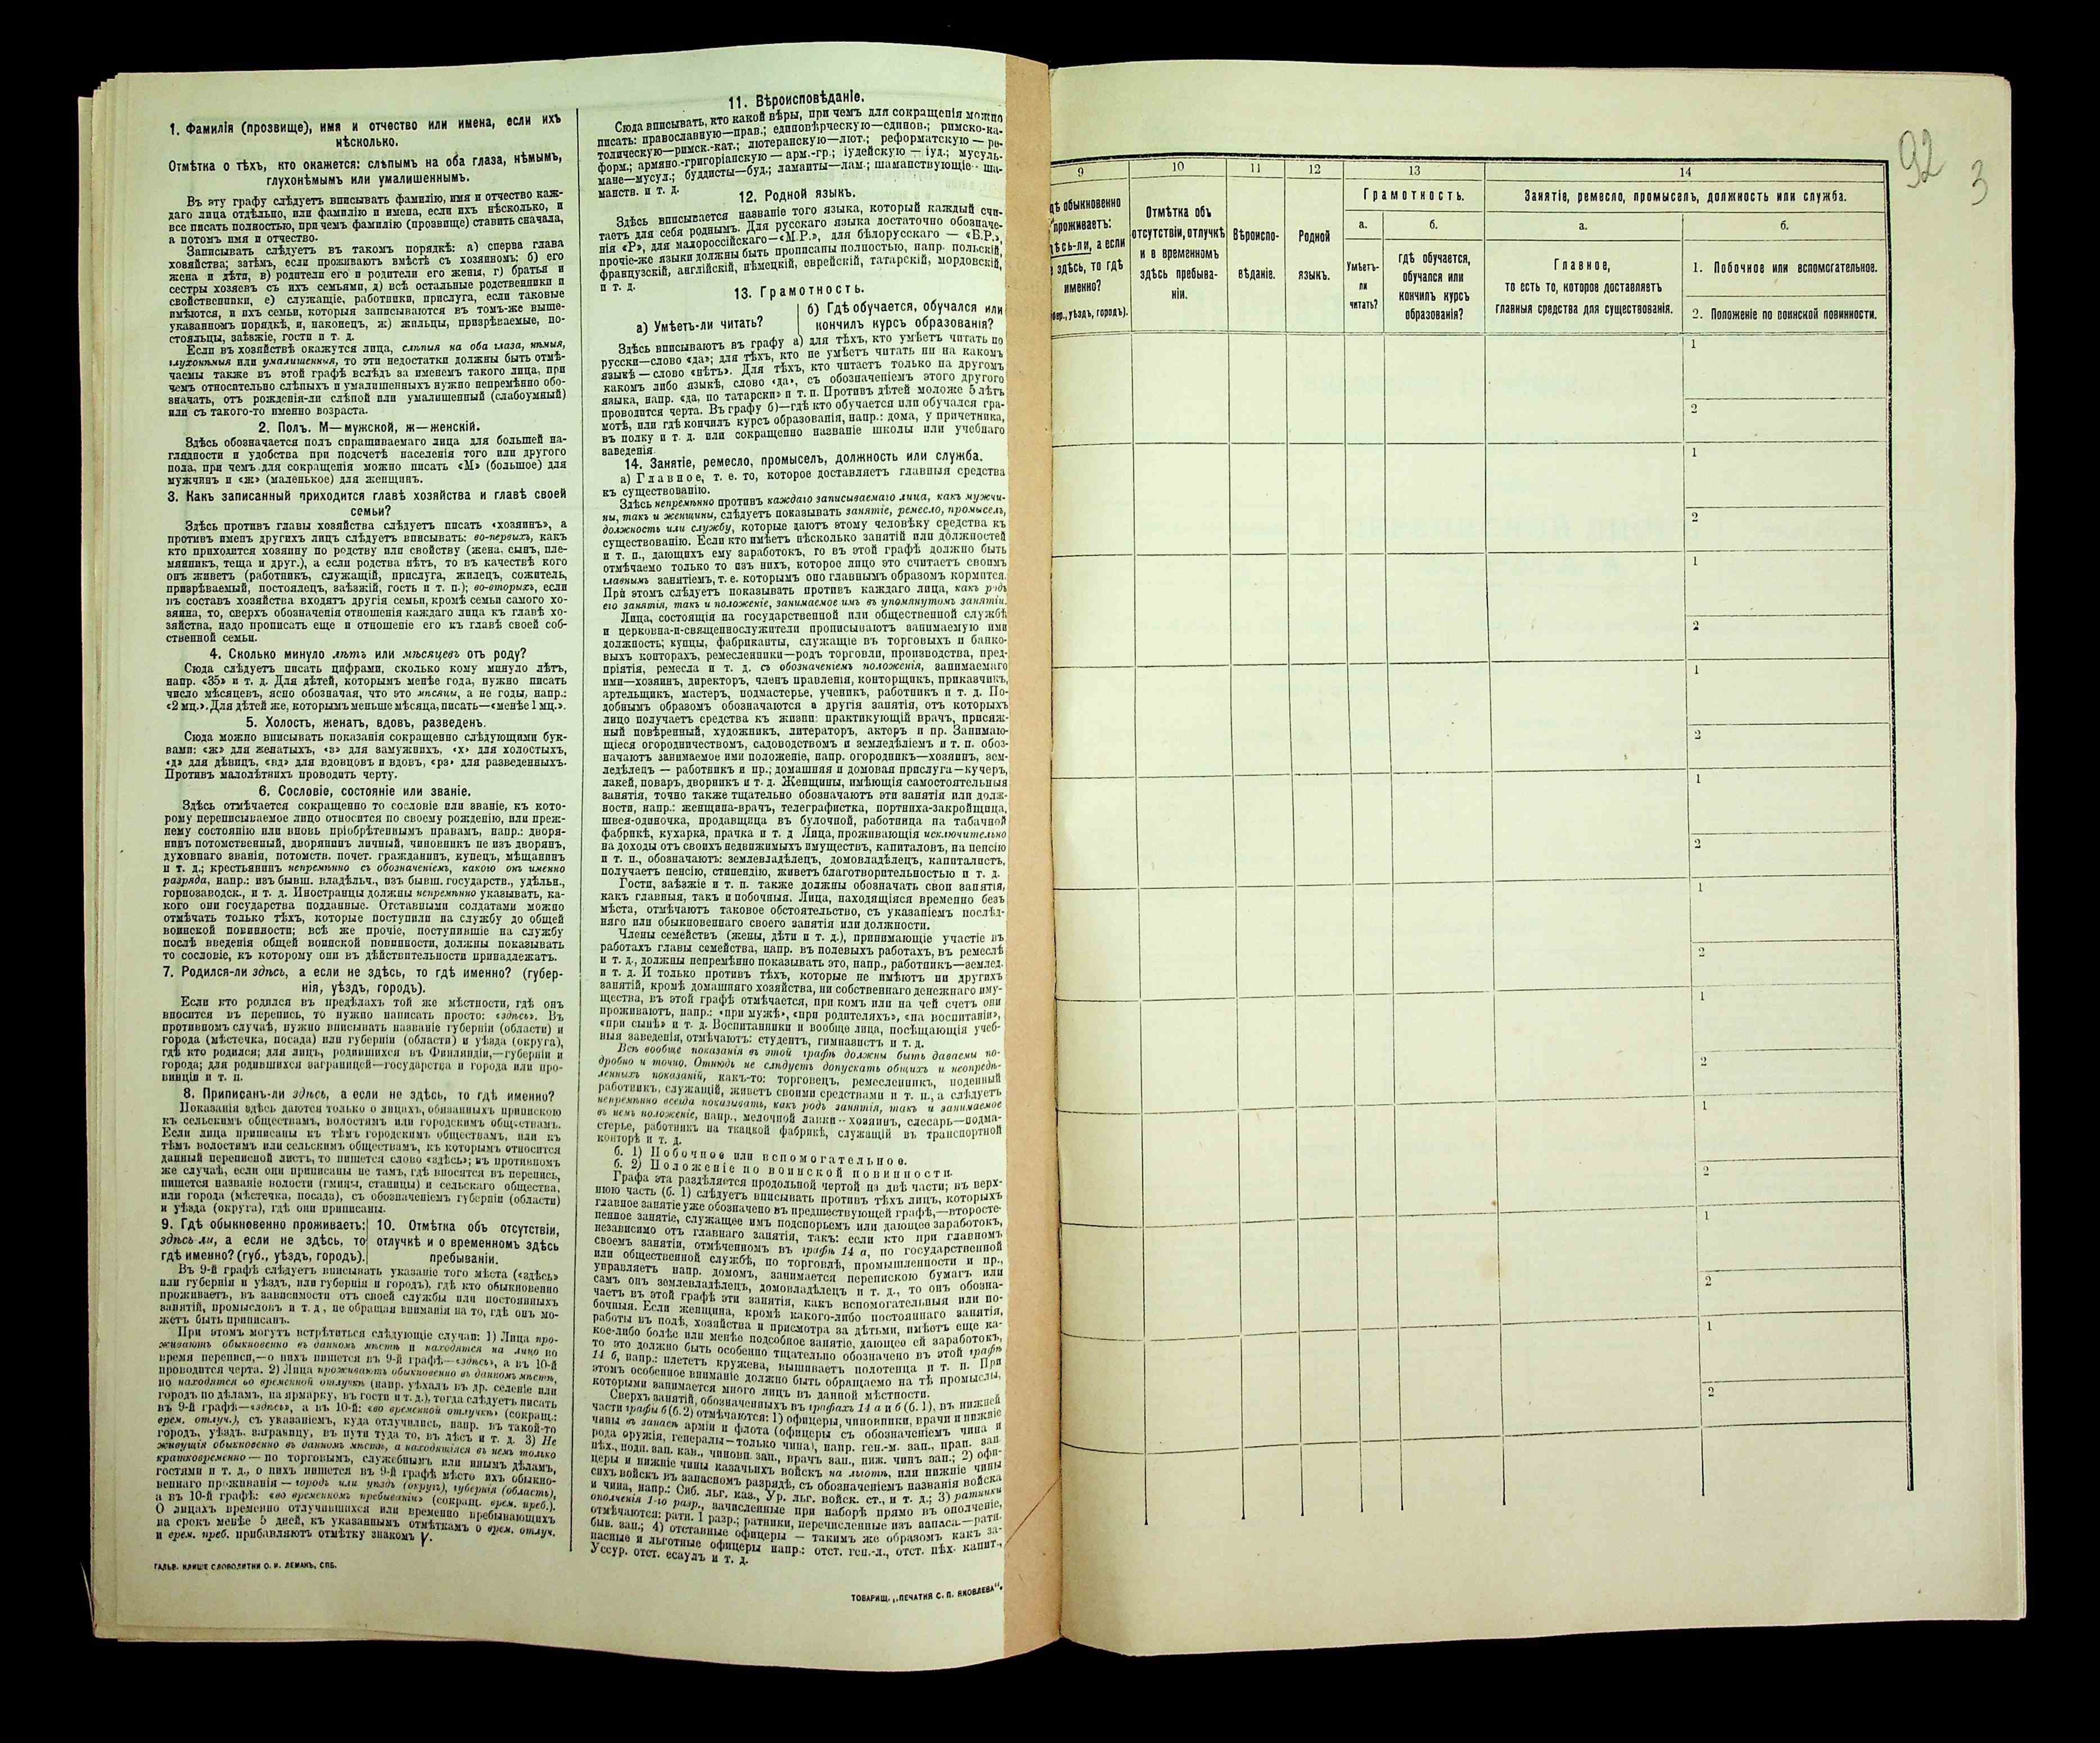 1. Фамилія (прозвище), имя и отчество или имена, если ихъ
нѣсколько.
Отмѣтка о тѣхъ, кто окажется: слѣпымъ на оба глаза, нѣмымъ,
глухонѣмымъ или умалишеннымъ.
Въ эту графу слѣдуетъ вписывать фамилію, имя и отчество каж-
даго лица отдѣльно, или фамилію и имена, если ихъ нѣсколько, и
все писать полностью, при чемъ фамилію (прозвище) ставить сначала,
а потомъ имя и отчество.
Записывать слѣдуетъ въ такомъ порядкѣ: а) сперва глава
хозяйства; затѣмъ, если проживаютъ вмѣстѣ съ хозяиномъ: б) его
жена и дѣти, в) родители его и родители его жены, г) братья и
сестры хозяевъ съ ихъ семьями, д) всѣ остальные родственники и
свойственники, е) служащіе, работники, прислуга, если таковые
имѣются, и ихъ семьи, которыя записываются въ томъ-же выше-
указанномъ порядкѣ, и, наконецъ, ж) жильцы, призрѣваемые, по-
стояльцы, заѣзжіе, гости и т. д.
Если въ хозяйствѣ окажутся лица, слѣпыя на оба глаза, нѣмыя,
глухонѣмыя или умалишенныя, то эти недостатки должны быть отмѣ-
чаемы также въ этой графѣ вслѣдъ за именемъ такого лица, при
чемъ относительно слѣпыхъ и умалишенныхъ нужно непремѣнно обо-
значать, отъ рожденія-ли слѣпой или умалишенный (слабоумный)
или съ такого-то именно возраста.
2. Полъ. М—мужской, ж—женскій.
Здѣсь обозначается полъ спрашиваемаго лица для большей на-
глядности и удобства при подсчетѣ населенія того или другого
пола, при чемъ для сокращенія можно писать «М» (большое) для
мужчинъ и «ж» (маленькое) для женщинъ.
3. Какъ записанный приходится главѣ хозяйства и главѣ своей
семьи?
Здѣсь противъ главы хозяйства слѣдуетъ писать «хозяинъ», а
противъ именъ другихъ лицъ слѣдуетъ вписывать: во-первыхъ, какъ
кто приходится хозяину по родству или свойству (жена, сынъ, пле-
мянникъ, теща и друг.), а если родства нѣтъ, то въ качествѣ кого
онъ живетъ (работникъ, служащій, прислуга, жилецъ, сожитель,
призрѣваемый, постоялецъ, заѣзжій, гость и т. п.); во-вторыхъ, если
въ составъ хозяйства входятъ другія семьи, кромѣ семьи самого хо-
зяина, то, сверхъ обозначенія отношенія каждаго лица къ главѣ хо-
зяйства, надо прописать еще и отношеніе его къ главѣ своей соб-
ственной семьи.
4. Сколько минуло лѣтъ или мѣсяцевъ отъ роду?
Сюда слѣдуетъ писать цифрами, сколько кому минуло лѣтъ,
напр. «35» и т. д. Для дѣтей, которымъ менѣе года, нужно писать
число мѣсяцевъ, ясно обозначая, что это мѣсяцы, а не годы, напр.:
«2 мц.». Для дѣтей же, которымъ меньше мѣсяца, писать—«менѣе 1 мц.».
5. Холостъ, женатъ, вдовъ, разведенъ.
Сюда можно вписывать показанія сокращенно слѣдующими бук-
вами: «ж» для женатыхъ, «з» для замужнихъ, «х» для холостыхъ,
«д» для дѣвицъ, «вд» для вдовцовъ и вдовъ, «рз» для разведенныхъ.
Противъ малолѣтнихъ проводить черту.
6. Сословіе, состояніе или званіе.
Здѣсь отмѣчается сокращенно то сословіе или званіе, къ кото-
рому переписываемое лицо относится по своему рожденію, или преж-
нему состоянію или вновь пріобрѣтеннымъ правамъ, напр.: дворя-
нинъ потомственный, дворянинъ личный, чиновникъ не изъ дворянъ,
духовнаго званія, потомств. почет. гражданинъ, купецъ, мѣщанинъ
и т. д.; крестьянинъ непремѣнно съ обозначеніемъ, какого онъ именно
разряда, напр.: изъ бывш. владѣльч., изъ бывш. государств., удѣльн.,
горнозаводск., и т. д. Иностранцы должны непремѣнно указывать, ка-
кого они государства подданные. Отставными солдатами можно
отмѣчать только тѣхъ, которые поступили на службу до общей
воинской повинности; всѣ же прочіе, поступившіе на службу
послѣ введенія общей воинской повинности, должны показывать
то сословіе, къ которому они въ дѣйствительности принадлежатъ.
7. Родился-ли здѣсь, а если не здѣсь, то гдѣ именно? (губер-
нія, уѣздъ, городъ).
Если кто родился въ предѣлахъ той же мѣстности, гдѣ онъ
вносится въ перепись, то нужно написать просто: «здѣсь». Въ
противномъ случаѣ, нужно вписывать названіе губерніи (области) и
города (мѣстечка, посада) или губерніи (области) и уѣзда (округа),
гдѣ кто родился; для лицъ, родившихся въ Финляндіи,—губерніи и
города; для родившихся заграницей—государства и города или про-
винціи и т. п.
8. Приписанъ-ли здѣсь, а если не здѣсь, то гдѣ именно?
Показанія здѣсь даются только о лицахъ, обязанныхъ припискою
къ сельскимъ обществамъ, волостямъ или городскимъ обществамъ.
Если лица приписаны къ тѣмъ городскимъ обществамъ, или къ
тѣмъ волостямъ или сельскимъ обществамъ, къ которымъ относится
данный переписной листъ, то пишется слово «здѣсь»; въ противномъ
же случаѣ, если они приписаны не тамъ, гдѣ вносятся въ перепись,
пишется названіе волости (гмины, станицы) и сельскаго общества,
или города (мѣстечка, посада), съ обозначеніемъ губерніи (области)
и уѣзда (округа), гдѣ они приписаны.
9. Гдѣ обыкновенно проживаетъ:
здѣсь ли, а если не здѣсь, то
гдѣ именно? (губ., уѣздъ, городъ).
10. Отмѣтка объ отсутствіи,
отлучкѣ и о временномъ здѣсь
пребываніи.
Въ 9-й графѣ слѣдуетъ вписывать указаніе того мѣста («здѣсь»
или губернія и уѣздъ, или губернія и городъ), гдѣ кто обыкновенно
проживаетъ, въ зависимости отъ своей службы или постоянныхъ
занятій, промысловъ и т. д., не обращая вниманія на то, гдѣ онъ мо-
жетъ быть приписанъ.
При этомъ могутъ встрѣтиться слѣдующіе случаи: 1) Лица про-
живаютъ обыкновенно въ данномъ мѣстѣ и находятся на лицо во
время переписи,—о нихъ пишется въ 9-й графѣ—«здѣсь», а въ 10-й
проводится черта. 2) Лица проживаютъ обыкновенно въ данномъ мѣстѣ,
но находятся во временной отлучкѣ (напр. уѣхалъ въ др. селеніе или
городъ по дѣламъ, на ярмарку, въ гости и т. д.), тогда слѣдуетъ писать
въ 9-й графѣ—«здѣсь», а въ 10-й: «во временной отлучкѣ» (сокращ.:
врем. отлуч.), съ указаніемъ, куда отлучились, напр. въ такой-то
городъ, уѣздъ, заграницу, въ пути туда то, въ лѣсъ и т. д. 3) Не
живущія обыкновенно въ данномъ мѣстѣ, а находящіяся въ немъ только
кратковременно — по торговымъ, служебнымъ или инымъ дѣламъ,
гостями и т. д., о нихъ пишется въ 9-й графѣ мѣсто ихъ обыкно-
веннаго проживанія — городъ или уѣздъ (округъ), губернія (область),
а въ 10-й графѣ: «во временномъ пребываніи» (сокращ. врем. преб.).
О лицахъ временно отлучившихся или временно пребывающихъ
на срокъ менѣе 5 дней, къ указаннымъ отмѣткамъ о врем. отлуч.
и врем. преб. прибавляютъ отмѣтку знакомъ V.
ГАЛЬВ. КЛИШЕ СЛОВОЛИТНИ О. И. ЛЕМАНЪ, СПБ.
11. Вѣроисповѣданіе.
Сюда вписывать, кто какой вѣры, при чемъ для сокращенія можно
писать: православную—прав.; единовѣрческую—единов.; римско-ка-
толическую—римск.-кат.; лютеранскую—лют.; реформатскую — ре-
форм.; армяно-григоріанскую — арм.-гр.; іудейскую — іуд.; мусуль-
мане—мусул.; буддисты—буд.; ламаиты—лам.; шаманствующіе — ша-
манств. и т. д.
12. Родной языкъ.
Здѣсь вписывается названіе того языка, который каждый счи-
таетъ для себя роднымъ. Для русскаго языка достаточно обозначе-
нія «Р», для малороссійскаго—«М.Р.», для бѣлорусскаго — «Б.Р.»,
прочіе-же языки должны быть прописаны полностью, напр. польскій,
французскій, англійскій, нѣмецкій, еврейскій, татарскій, мордовскій,
и т. д.
13. Грамотность.
а) Умѣетъ-ли читать?
б) Гдѣ обучается, обучался или
кончилъ курсъ образованія?
Здѣсь вписываютъ въ графу а) для тѣхъ, кто умѣетъ читать по
русски—слово «да»; для тѣхъ, кто не умѣетъ читать ни на какомъ
языкѣ — слово «нѣтъ». Для тѣхъ, кто читаетъ только на другомъ
какомъ либо языкѣ, слово «да», съ обозначеніемъ этого другого
языка, напр. «да, по татарски» и т. п. Противъ дѣтей моложе 5 лѣтъ
проводится черта. Въ графу б)—гдѣ кто обучается или обучался гра-
мотѣ, или гдѣ кончилъ курсъ образованія, напр.: дома, у причетника,
въ полку и т. д. или сокращенно названіе школы или учебнаго
заведенія.
14. Занятіе, ремесло, промыселъ, должность или служба.
а) Главное, т. е. то, которое доставляетъ главныя средства
къ существованію.
Здѣсь непремѣнно противъ каждаго записываемаго лица, какъ мужчи-
ны, такъ и женщины, слѣдуетъ показывать занятіе, ремесло, промыселъ,
должность или службу, которые даютъ этому человѣку средства къ
существованію. Если кто имѣетъ нѣсколько занятій или должностей
и т. п., дающихъ ему заработокъ, то въ этой графѣ должно быть
отмѣчаемо только то изъ нихъ, которое лицо это считаетъ своимъ
главнымъ занятіемъ, т. е. которымъ оно главнымъ образомъ кормится.
При этомъ слѣдуетъ показывать противъ каждаго лица, какъ родъ
его занятія, такъ и положеніе, занимаемое имъ въ упомянутомъ занятіи.
Лица, состоящія на государственной или общественной службѣ
и церковно-и-священнослужители прописываютъ занимаемую ими
должность; купцы, фабриканты, служащіе въ торговыхъ и банко-
выхъ конторахъ, ремесленники—родъ торговли, производства, пред-
пріятія, ремесла и т. д. съ обозначеніемъ положенія, занимаемаго
ими—хозяинъ, директоръ, членъ правленія, конторщикъ, приказчикъ,
артельщикъ, мастеръ, подмастерье, ученикъ, работникъ и т. д. По-
добнымъ образомъ обозначаются и другія занятія, отъ которыхъ
лицо получаетъ средства къ жизни: практикующій врачъ, присяж-
ный повѣренный, художникъ, литераторъ, актеръ и пр. Занимаю-
щіеся огородничествомъ, садоводствомъ и земледѣліемъ и т. п. обоз-
начаютъ занимаемое ими положеніе, напр. огородникъ—хозяинъ, зем-
ледѣлецъ — работникъ и пр.; домашняя и домовая прислуга—кучеръ,
лакей, поваръ, дворникъ и т. д. Женщины, имѣющія самостоятельныя
занятія, точно также тщательно обозначаютъ эти занятія или долж-
ности, напр.: женщина-врачъ, телеграфистка, портниха-закройщица,
швея-одиночка, продавщица въ булочной, работница на табачной
фабрикѣ, кухарка, прачка и т. д. Лица, проживающія исключительно
на доходы отъ своихъ недвижимыхъ имуществъ, капиталовъ, на пенсію
и т. п., обозначаютъ: землевладѣлецъ, домовладѣлецъ, капиталистъ,
получаетъ пенсію, стипендію, живетъ благотворительностью и т. д.
Гости, заѣзжіе и т. п. также должны обозначать свои занятія,
какъ главныя, такъ и побочныя. Лица, находящіяся временно безъ
мѣста, отмѣчаютъ таковое обстоятельство, съ указаніемъ послѣд-
няго или обыкновеннаго своего занятія или должности.
Члены семействъ (жены, дѣти и т. д.), принимающіе участіе въ
работахъ главы семейства, напр. въ полевыхъ работахъ, въ ремеслѣ
и т. д., должны непремѣнно показывать это, напр., работникъ—землед.
и т. д. И только противъ тѣхъ, которые не имѣютъ ни другихъ
занятій, кромѣ домашняго хозяйства, ни собственнаго денежнаго иму-
щества, въ этой графѣ отмѣчается, при комъ или на чей счетъ они
проживаютъ, напр.: «при мужѣ», «при родителяхъ», «на воспитаніи»,
«при сынѣ» и т. д. Воспитанники и вообще лица, посѣщающія учеб-
ныя заведенія, отмѣчаютъ: студентъ, гимназистъ и т. д.
Всѣ вообще показанія въ этой графѣ должны быть даваемы по-
дробно и точно. Отнюдь не слѣдуетъ допускать общихъ и неопредѣ-
ленныхъ показаній, какъ-то: торговецъ, ремесленникъ, поденный
работникъ, служащій, живетъ своими средствами и т. п., а слѣдуетъ
непремѣнно всегда показывать, какъ родъ занятія, такъ и занимаемое
въ немъ положеніе, напр., мелочной лавки—хозяинъ, слесарь—подма-
стерье, работникъ на ткацкой фабрикѣ, служащій въ транспортной
конторѣ и т. д.
б. 1) Побочное или вспомогательное.
б. 2) Положеніе по воинской повинности.
Графа эта раздѣляется продольной чертой на двѣ части; въ верх-
нюю часть (б. 1) слѣдуетъ вписывать противъ тѣхъ лицъ, которыхъ
главное занятіе уже обозначено въ предшествующей графѣ,—второсте-
пенное занятіе, служащее имъ подспорьемъ или дающее заработокъ,
независимо отъ главнаго занятія, такъ: если кто при главномъ
своемъ занятіи, отмѣченномъ въ графѣ 14 а, по государственной
или общественной службѣ, по торговлѣ, промышленности и пр.,
управляетъ напр. домомъ, занимается перепискою бумагъ или
самъ онъ землевладѣлецъ, домовладѣлецъ и т. д., то онъ обозна-
чаетъ въ этой графѣ эти занятія, какъ вспомогательныя или по-
бочныя. Если женщина, кромѣ какого-либо постояннаго занятія,
работы въ полѣ, хозяйства и присмотра за дѣтьми, имѣетъ еще ка-
кое-либо болѣе или менѣе подсобное занятіе, дающее ей заработокъ,
то это должно быть особенно тщательно обозначено въ этой графѣ
14 б, напр.: плететъ кружева, вышиваетъ полотенца и т. п. При
этомъ особенное вниманіе должно быть обращаемо на тѣ промыслы,
которыми занимается много лицъ въ данной мѣстности.
Сверхъ занятій, обозначенныхъ въ графахъ 14 а и б (б. 1), въ нижней
части графы б (б. 2) отмѣчаются: 1) офицеры, чиновники, врачи и нижніе
чины въ запасѣ арміи и флота (офицеры съ обозначеніемъ чина и
рода оружія, генералы—только чина), напр. ген.-м. зап., прап. зап.
пѣх., подп. зап. кав., чиновн. зап., врачъ зап., ниж. чинъ зап.; 2) офи-
церы и нижніе чины казачьихъ войскъ на льготѣ, или нижніе чины
сихъ войскъ въ запасномъ разрядѣ, съ обозначеніемъ названія войска
и чина, напр.: Сиб. льг. каз., Ур. льг. войск. ст., и т. д.; 3) ратники
ополченія 1-го разр., зачисленные при наборѣ прямо въ ополченіе,
отмѣчаются: ратн. 1 разр.; ратники, перечисленные изъ запаса.—ратн.
быв. зап.; 4) отставные офицеры — такимъ же образомъ какъ за-
пасные и льготные офицеры напр.: отст. ген.-л., отст. пѣх. капит.,
Уссур. отст. есаулъ и т. д.
ТОВАРИЩ. „ПЕЧАТНЯ С. П. ЯКОВЛЕВА".
92
3
9
10
11
12
13
14
обыкновенно
проживаетъ:
а если
здѣсь, то гдѣ
именно?
уѣздъ, городъ).
Отмѣтка объ
отсутствіи, отлучкѣ
и о временномъ
здѣсь пребыва-
ніи.
Вѣроиспо-
вѣданіе.
Родной
языкъ.
Грамотность.
а.
Умѣетъ-
ли
читать?
б.
гдѣ обучается,
обучался или
кончилъ курсъ
образованія?
Занятіе, ремесло, промыселъ, должность или служба.
а.
Главное,
то есть то, которое доставляетъ
главныя средства для существованія.
б.
1. Побочное или вспомогательное.
2. Положеніе по воинской повинности.
1
2
1
2
1
2
1
2
1
2
1
2
1
2
1
2
1
2
1
2